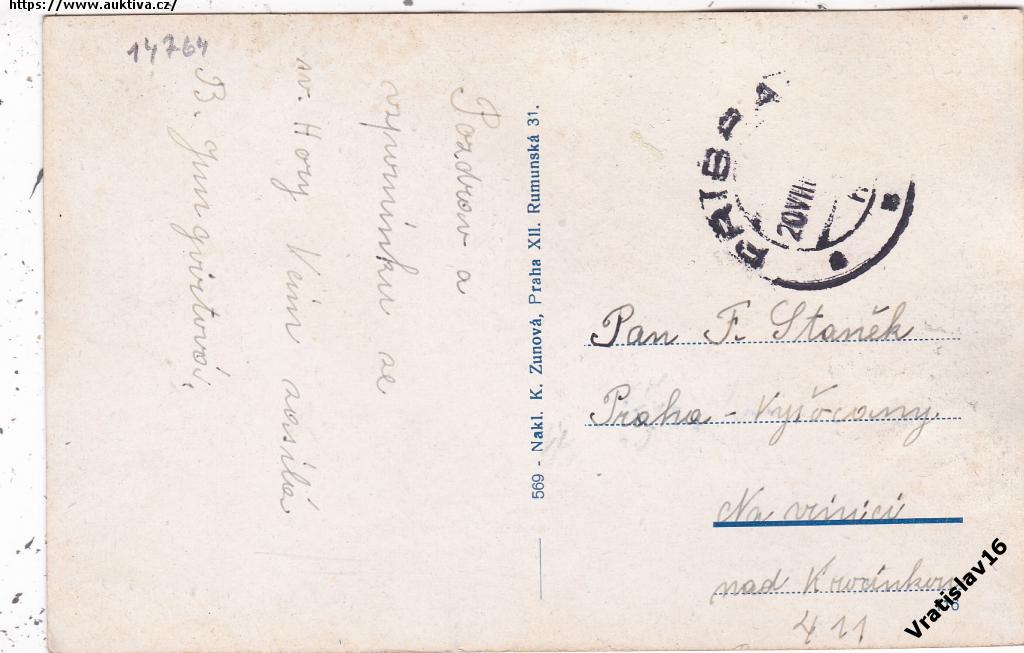 https://www.auktiva.cz/
14764
Pozdrav a
vzpomínku se
sv. Hory Vám zasílá
B. Jungvirtová.
569 - Nakl. K. Zunová, Praha XII. Rumunská 31.
20 VIII
Pan F. Staněk
Praha - Vysočany.
Na vinici
nad
411
Vratislav16